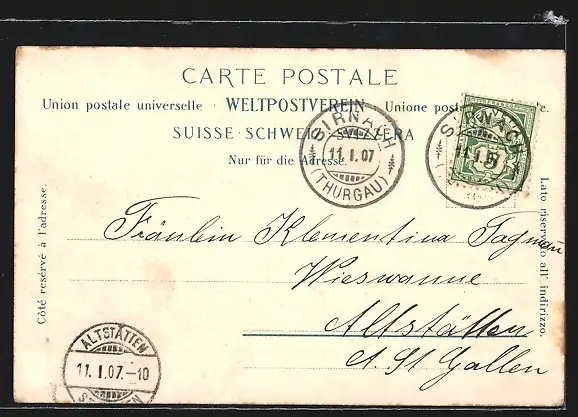 CARTE POSTALE
Union postale universelle · WELTPOSTVEREIN · Unione postale
SUISSE · SCHWEIZ · SVIZZERA
Nur für die Adresse.
SIRNACH
11. I. 07
(THURGAU)
SIRNACH
11. I. 07
Côté reservé à l'adresse.
Lato riservato all' indirizzo.
Fräulein Klementina
Wieswanne
Altstätten
Kt. St Gallen
ALTSTÄTTEN
11. I. 07.–10